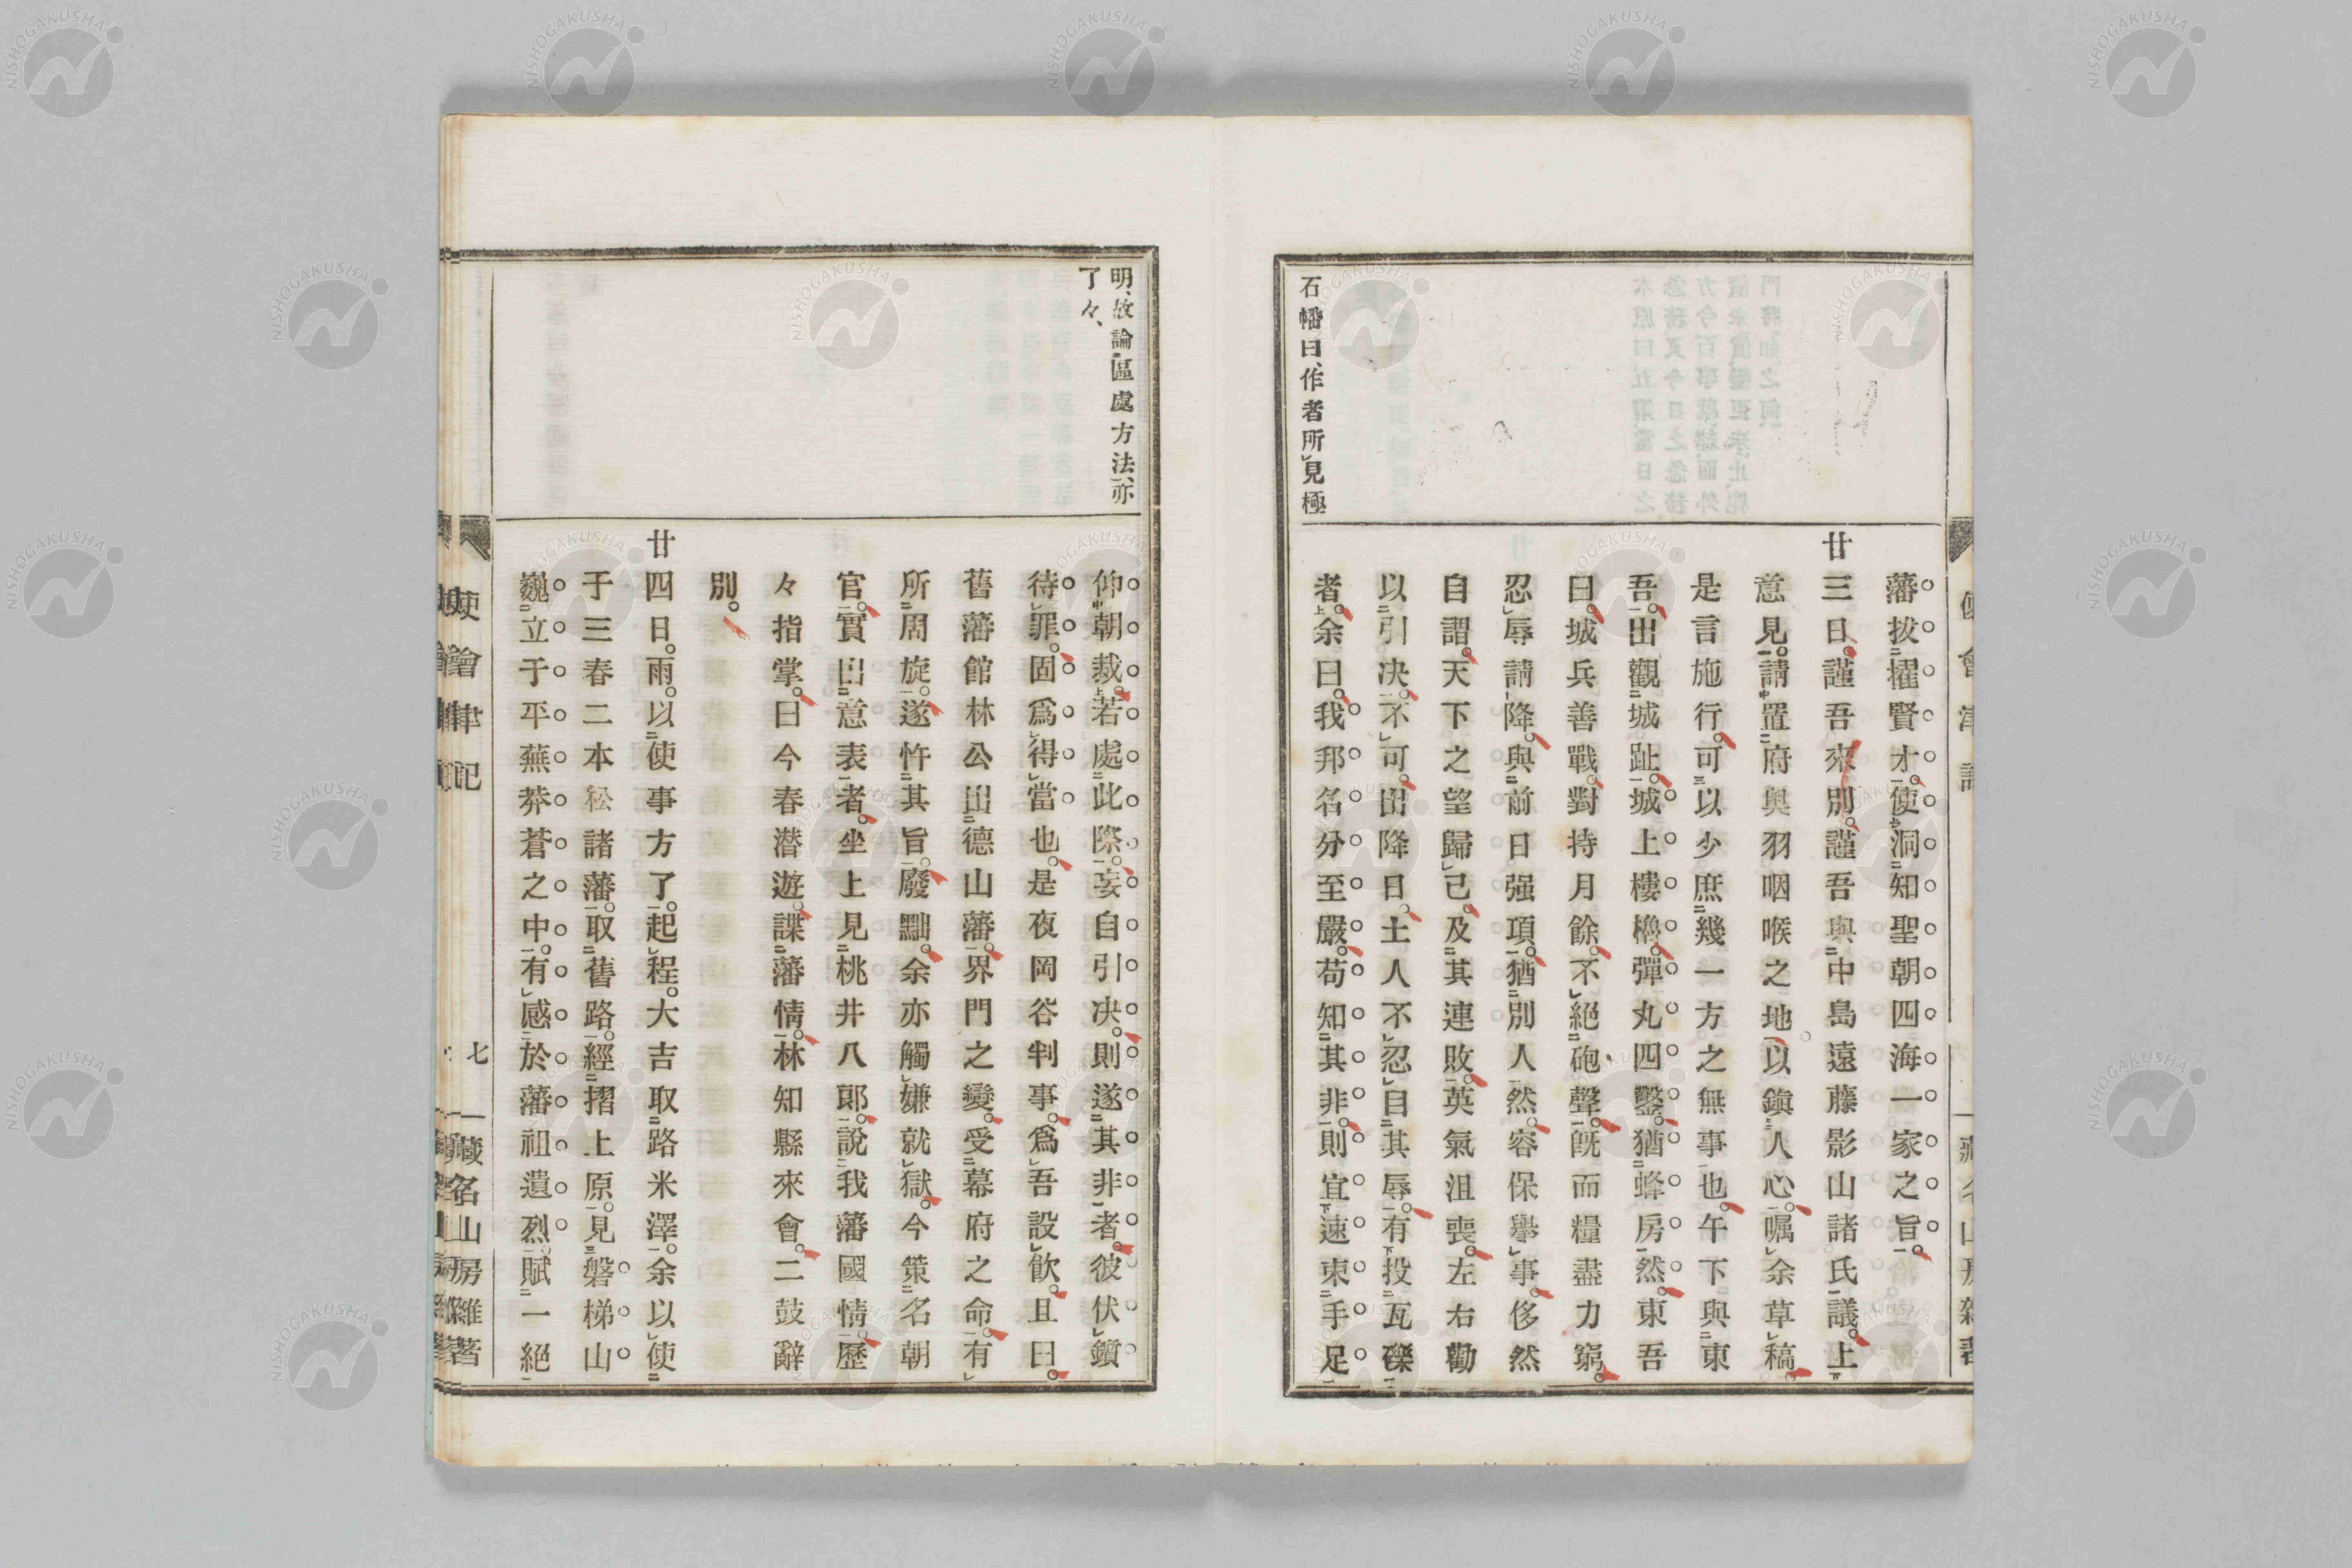 藩拔擢賢才。使洞知聖朝四海一家之旨。
廿三日。謹吾來別。謹吾與中島遠藤影山諸氏議。上
意見。請置府奧羽咽喉之地。以鎭人心。囑余草稿。
是言施行。可以少庶幾一方之無事也。午下與東
吾。出觀城趾。城上樓櫓。彈丸四鑿。猶蜂房然。東吾
曰。城兵善戰。對持月餘。不絕砲聲。既而糧盡力窮。
忍辱請降。與前日强項。猶別人然。容保擧事。侈然
自謂。天下之望歸己。及其連敗。英氣沮喪。左右勸
以引决。不可。出降日。士人不忍自其辱。有投瓦礫
者。余曰。我邦名分至嚴。苟知其非。則宜速束手足
石幡曰、作者所見極
仰朝裁。若處此際。妄自引决。則遂其非者。彼伏鎭
待罪。固爲得當也。是夜岡谷判事。爲吾設飮。且曰。
舊藩館林公出德山藩。界門之變。受幕府之命。有
所周旋。遂忤其旨。廢黜。余亦觸嫌就獄。今策名朝
官。實出意表者。坐上見桃井八郎。說我藩國情。歷
々指掌。曰今春潜遊。諜藩情。林知縣來會。二鼓辭
別。
廿四日。雨。以使事方了。起程。大吉取路米澤。余以使
于三春二本松諸藩。取舊路。經摺上原。見磐梯山
巍立于平蕪莽蒼之中。有感於藩祖遺烈。賦一絕
明、故論區處方法、亦
了々、
使會津記
七
藏名山房雜著